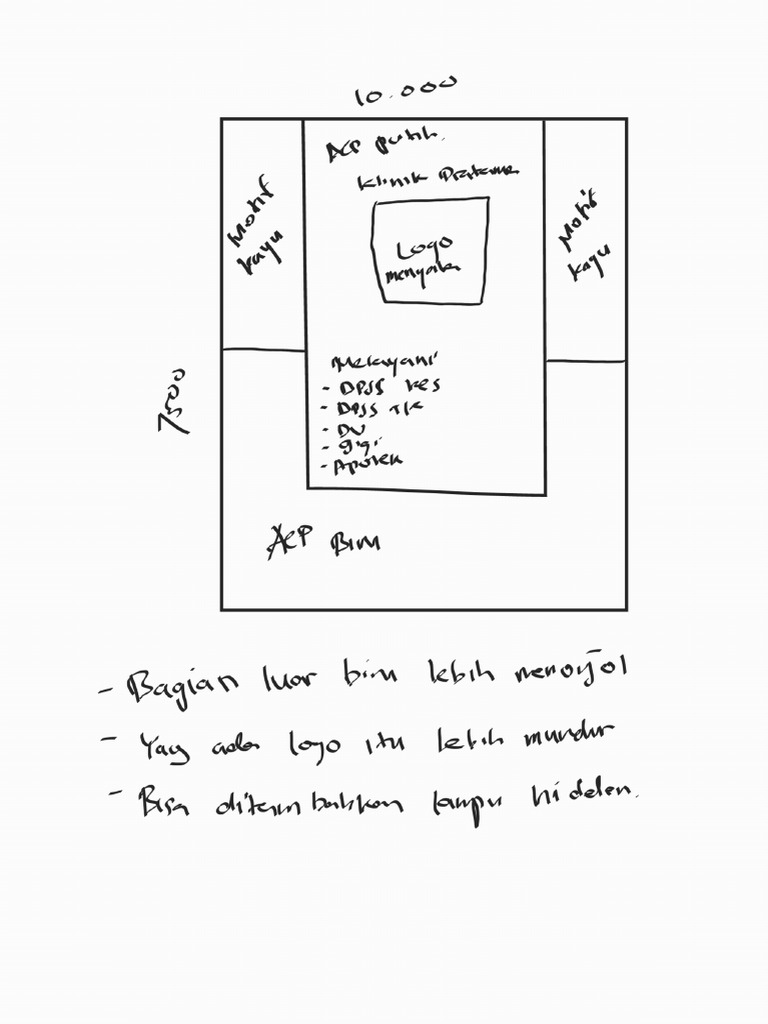 10.000
ACP putih.
Klinik Pratama
Motif
kayu
Logo
menyala
Motif
kayu
7500
Melayani
- BPJS kes
- BPJS TK
- DU
- gigi
- Apotek
ACP Biru
- Bagian luar biru lebih menonjol
- Yang ada logo itu lebih mundur
- Bisa ditambahkan lampu hidden.